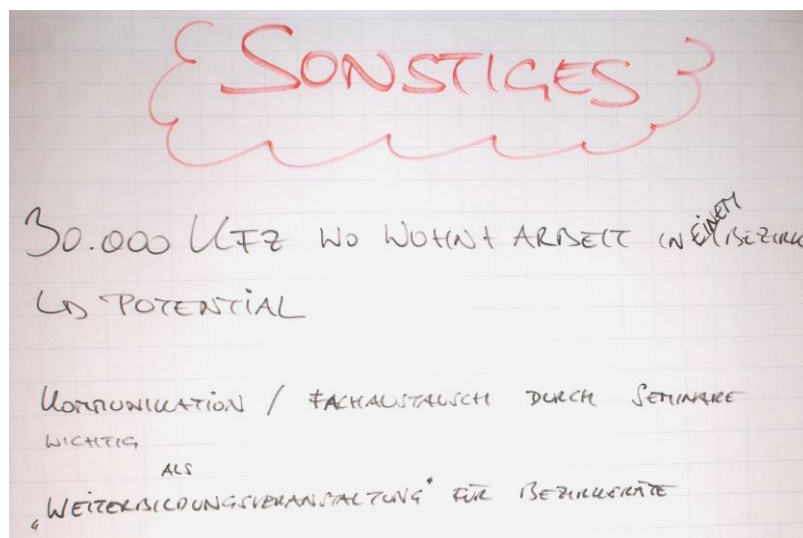 SONSTIGES
30.000 KFZ WO WOHN + ARBEIT IN EINEM BEZIRK
↳ POTENTIAL
KOMMUNIKATION / FACHAUSTAUSCH DURCH SEMINARE
WICHTIG
ALS
„WEITERBILDUNGSVERANSTALTUNG" FÜR BEZIRKSRÄTE